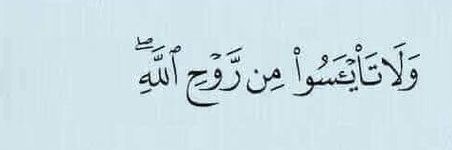 وَلَا تَا۟يْـَٔسُوا۟ مِن رَّوْحِ ٱللَّهِ ۖ